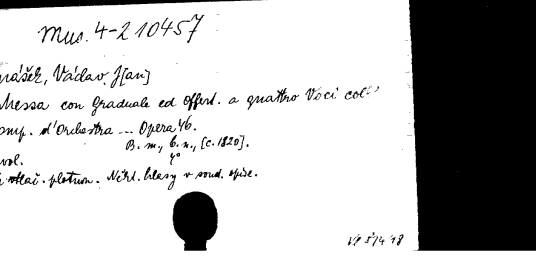 Mus. 4-210457
rášek, Václav J[an]
Messa con Graduale ed Offert. a quattro Voci coll'
omp. d'Orchestra ... Opera 46.
B. m., b. n., [c. 1820].
vol. 4°
tlač. plotnon. Někt. hlasy v soud. opise.